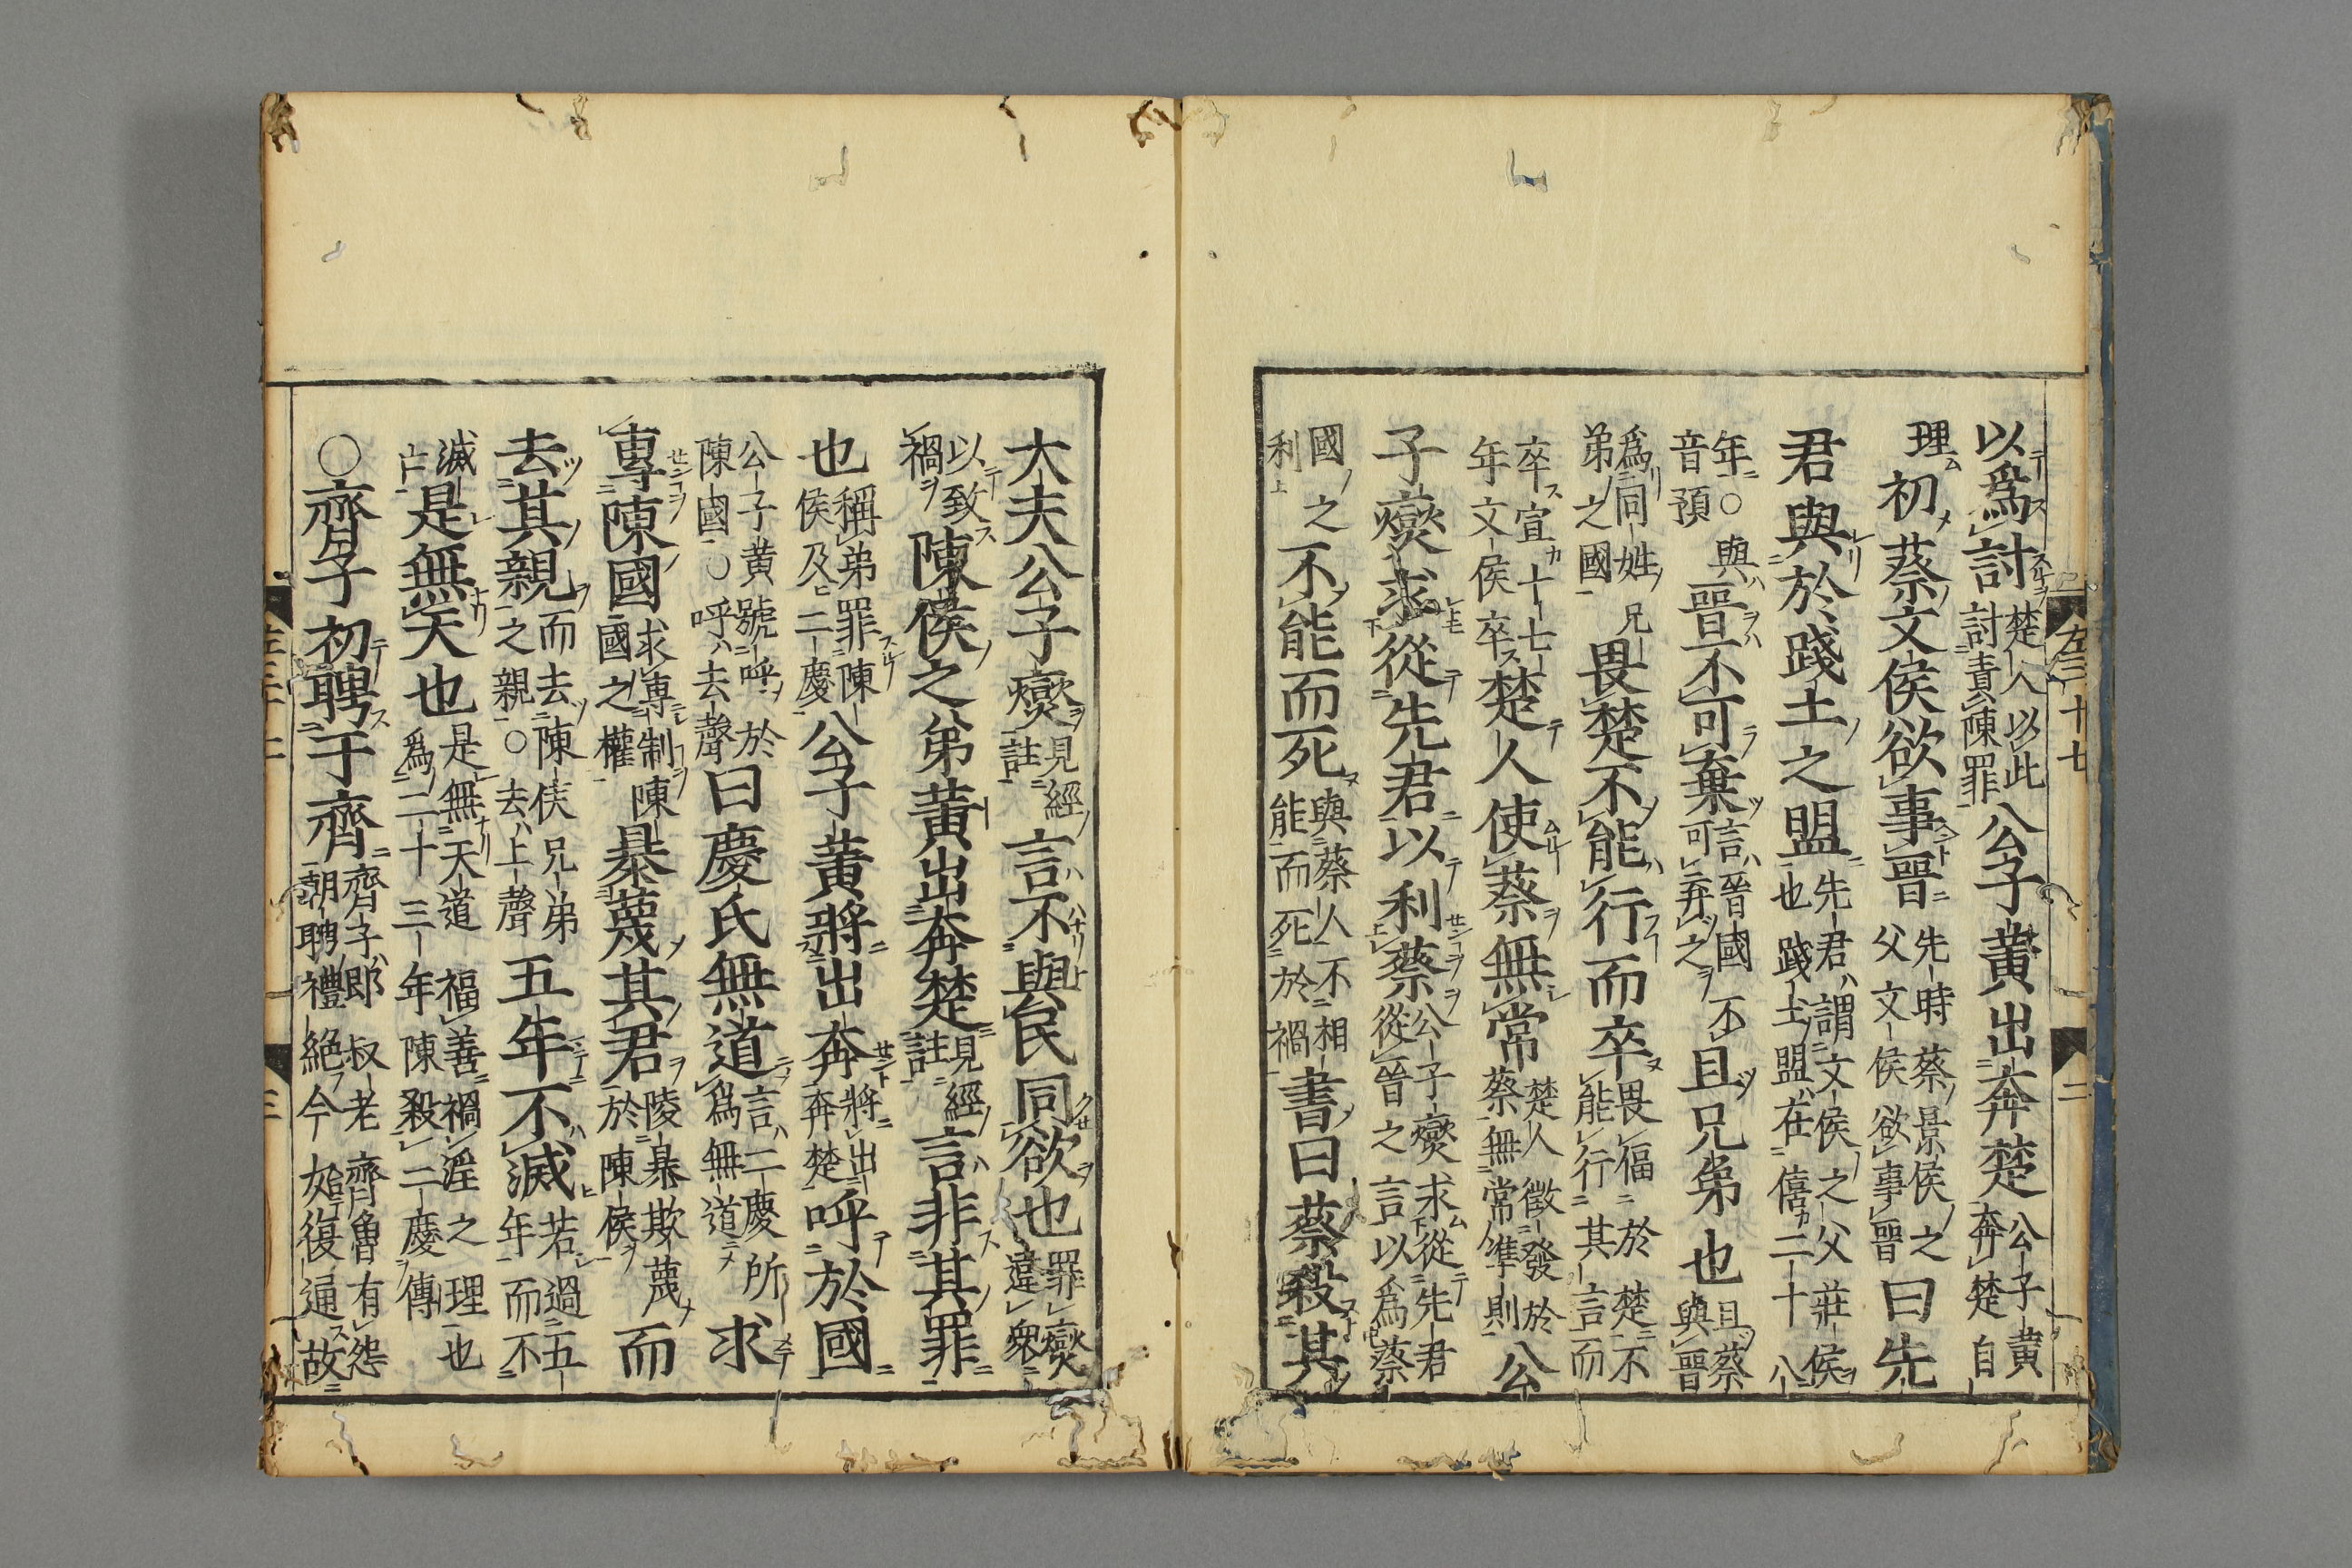 以爲討楚人以此討責陳罪公子黃出奔楚公子黃奔楚自
理初蔡文侯欲事晉先時蔡景侯之父文侯欲事晉曰先
君與於踐土之盟先君謂文侯之父莊侯也踐土盟在僖二十八
年○與音預晉不可棄言晉國不可弃之且兄弟也且蔡與晉
爲同姓兄弟之國畏楚不能行而卒畏偪於楚不能行其言而
卒宣十七年文侯卒楚人使蔡無常楚人徵發於蔡無常準則公
子燮求從先君以利蔡公子燮求從先君從晉之言以爲蔡
國之利不能而死與蔡人不相能而死於禍書曰蔡殺其
大夫公子燮見經註言不與民同欲也罪燮違衆
以致禍陳侯之弟黃出奔楚見經註言非其罪
也稱弟罪陳侯及二慶公子黃將出奔將出奔楚呼於國
公子黃號呼於陳國○呼去聲曰慶氏無道言二慶所爲無道求
專陳國求專制陳國之權暴蔑其君陵暴欺蔑於陳侯而
去其親而去陳侯兄弟之親○去上聲五年不滅若過五年而不
滅亡是無天也是無天道福善禍淫之理也爲二十三年陳殺二慶傳
○齊子初聘于齊齊子郎叔老齊魯有怨朝聘禮絶今始復通故
左三十七
二
三